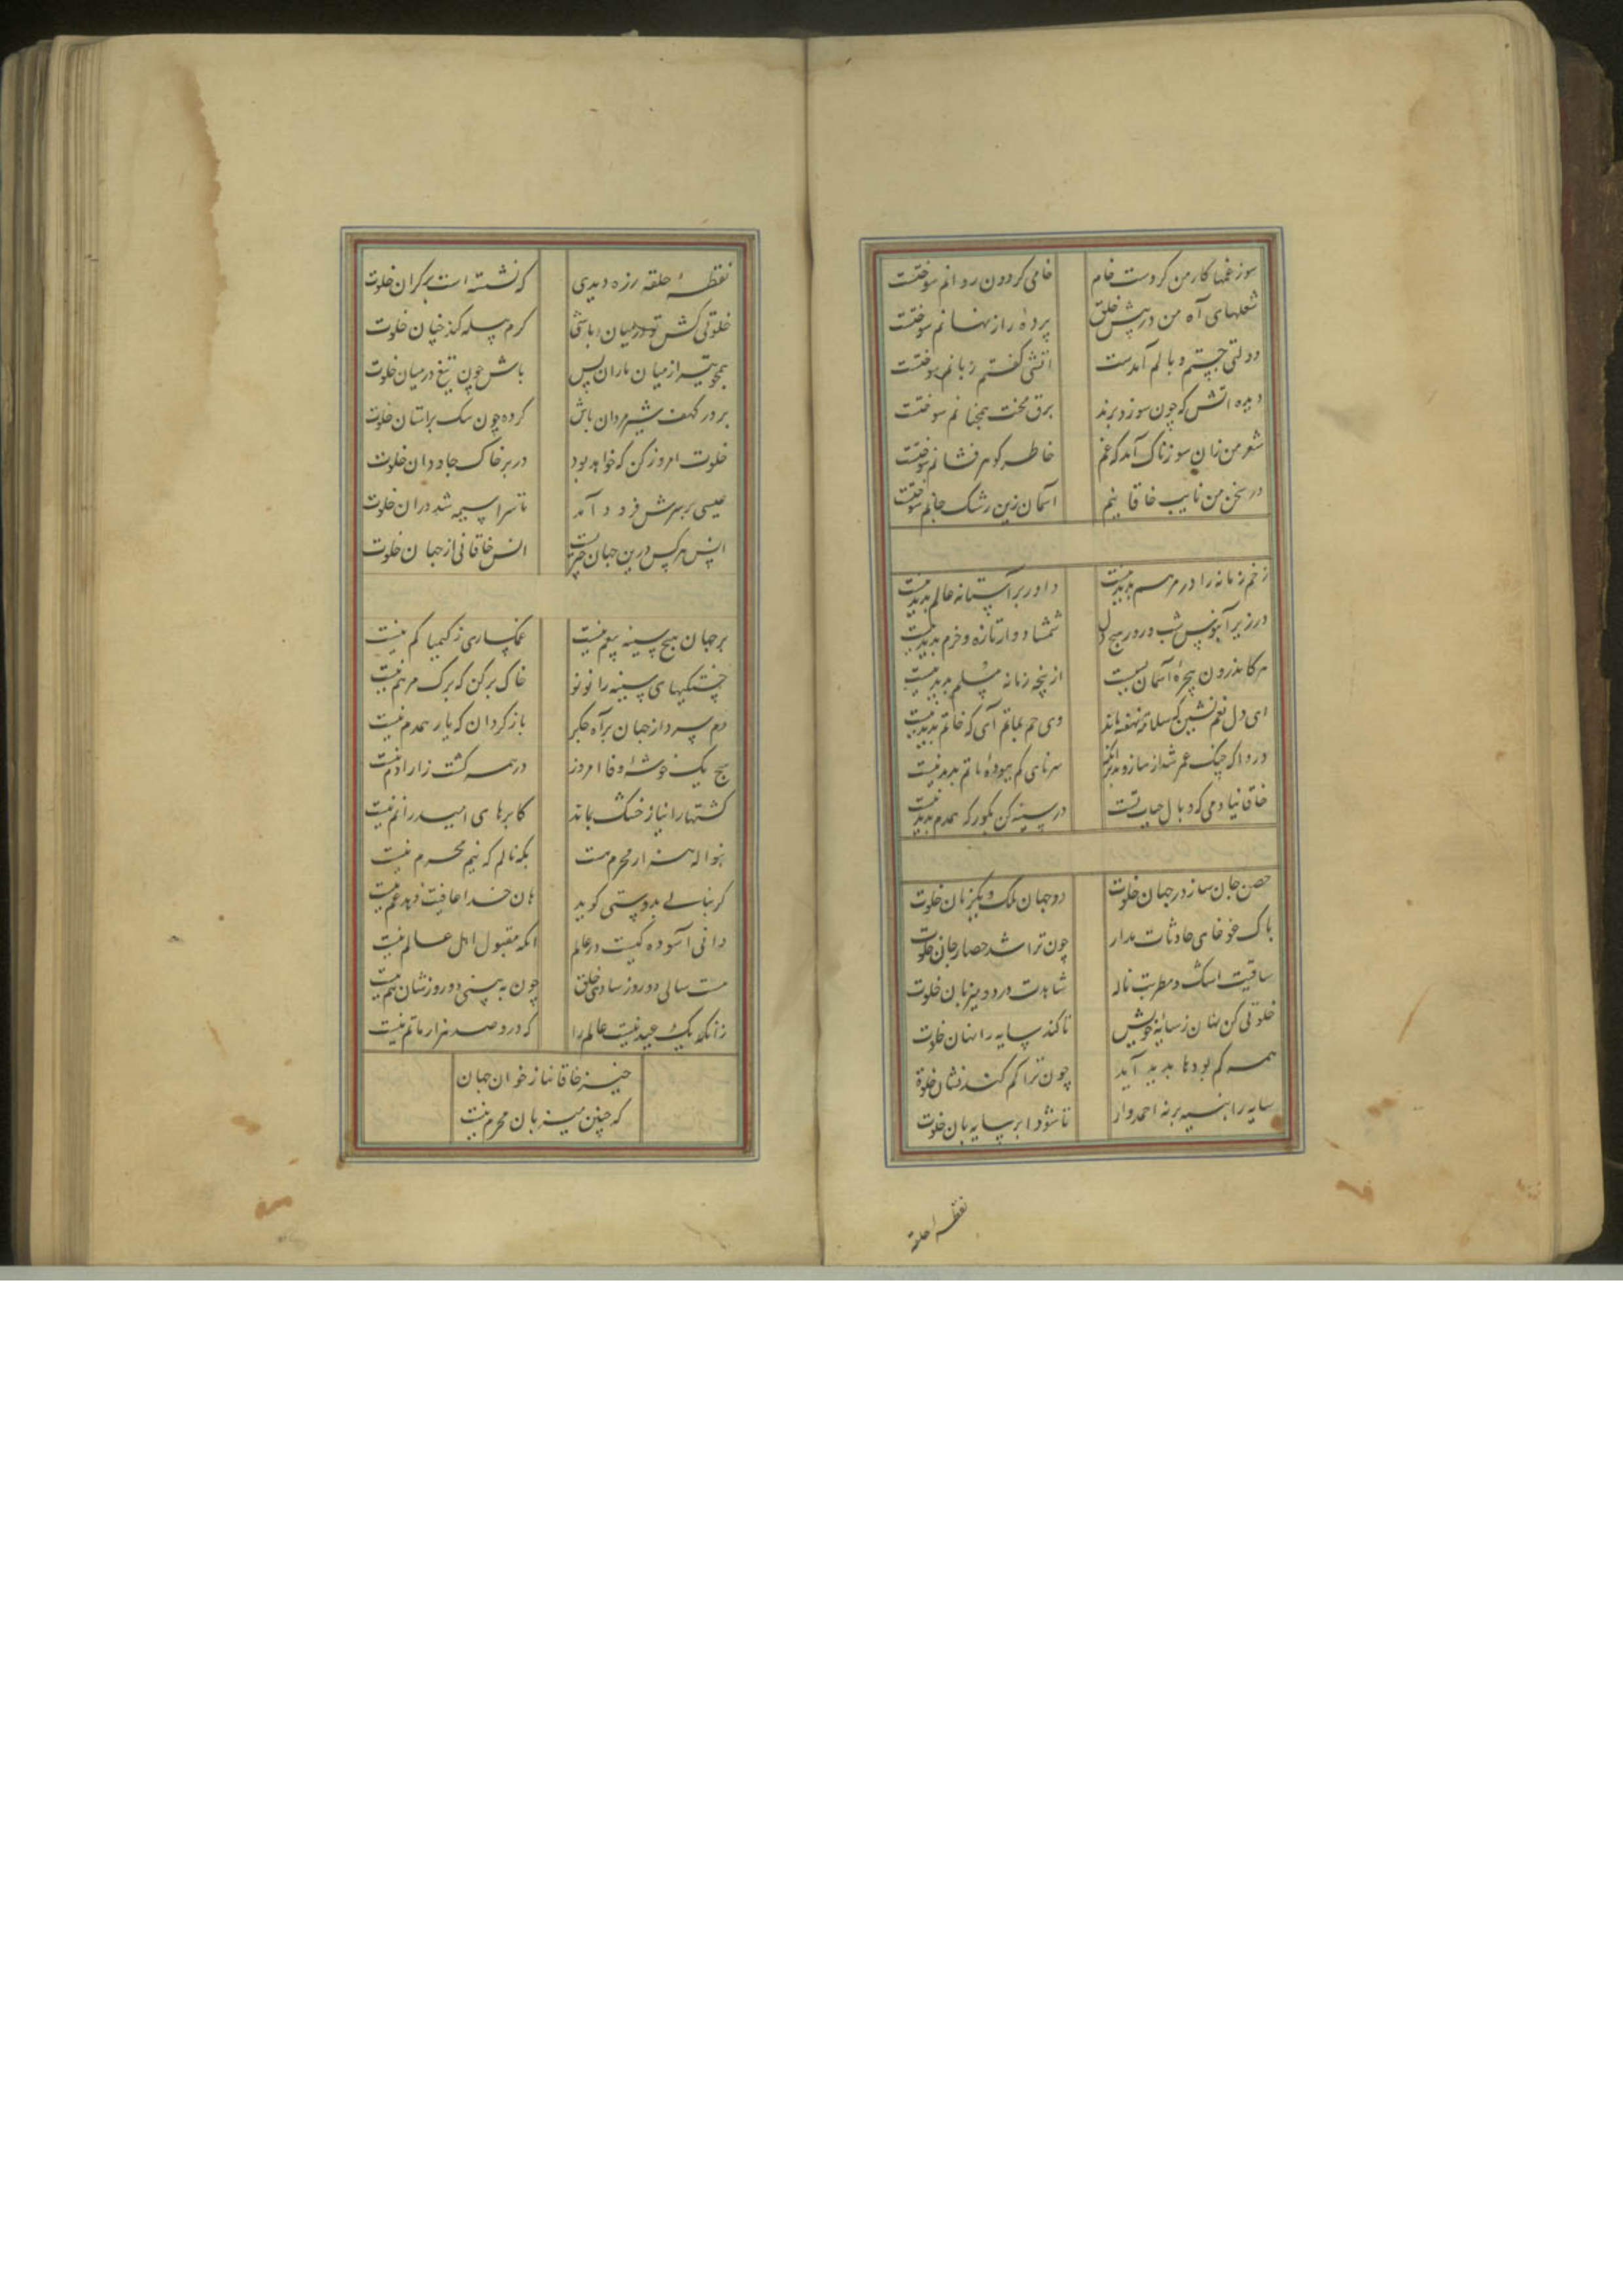 سوز غمها کار من کردست خام خامی کردون روانم سوختست
شعلهای آه من در پیش خلق پردهٔ راز نهانم سوختست
دولتی جستم وبالم آمدست اتشی کفتم زبانم سوختست
دیده اتش که چون سوزد برند برق محنت همچنانم سوختست
شعر من زان سوزناک آمد که غم خاطر کوهر فشانم سوختست
در سخن من نایب خاقانیم آسمان زین رشک جانم سوختست
زخم زمانه را در مرهم پدید نیست داور بر آستانه عالم پدید نیست
در زیر آبنوس شب و روز هیچ دل شمشاد وار تازه و خرم پدید نیست
هر کاندرون پنجره آسمان نشست از پنجه زمانه مسلم پدید نیست
ای دل بغم نشین که سلامت نهفته ماند وی جم بماتم آی که خاتم پدید نیست
دردا که چنک عمر شد از ساز و بدتر آنک سرنای کم ببودهٔ ماتم پدید نیست
خاقانیا دمی که وبال حیات تست در سینه کن بکور که همدم پدید نیست
حصن جان ساز در جهان خلوت دو جهان ملک و یکزمان خلوت
باک غوغای حادثات مدار چون ترا شد حصار جان خلوت
ساقیت اشک و مطربت ناله شاهدت درد و میزبان خلوت
خلوتی کن نهان ز سایهٔ خویش تا کند سایه را نهان خلوت
همه کم بودها پدید آید چون ترا کم کند نشان خلوة
سایه را هنبسیه برنه احمدوار تا شود ابر سایه بان خلوت
نقطهٔ حلقه
نقطهٔ حلقه زره دیدی که نشسته است بر کران خلوت
خلوتی کش تو در میان باشی کرم پیله کند چنان خلوت
همچو تیر از میان یاران پس باش چون تیغ در میان خلوت
بر در کهف شیر مردان باش کرده چون سک بر استان خلوت
خلوت امروز کن که خواهد بود در بر خاک جاودان خلوت
عیسی بر سرش فرود آمد تا سراسیمه شد دران خلوت
انس هر کس درین جهان چیزیست انس خاقانی از جهان خلوت
بر جهان هیچ سینه بیغم نیست غمکساری ز کیمیا کم نیست
خستکیهای سینه را نو نو خاک بر کن که برک مرهم نیست
دم سرد از جهان برآه جکر باز کردان که یار همدم نیست
هیچ یک خوشهٔ وفا امروز در همه کشت زار ادم نیست
کشتهارا نیاز خشک بماند کابرهای امید را نم نیست
بنواله هزار محرم هست بکه نالم که نیم محرم نیست
کر بنالی بدوستی کوید هان خدا عافیت دهد غم نیست
دانی آسوده کیست در عالم انکه مقبول اهل عالم نیست
هست سالی دو روز شادی خلق چون ببینی دو روزشان هم نیست
زانکه یک عید نیست عالم را که درو صد هزار ماتم نیست
خیز خاقانیا ز خوان جهان
که چنین میزبان محرم نیست